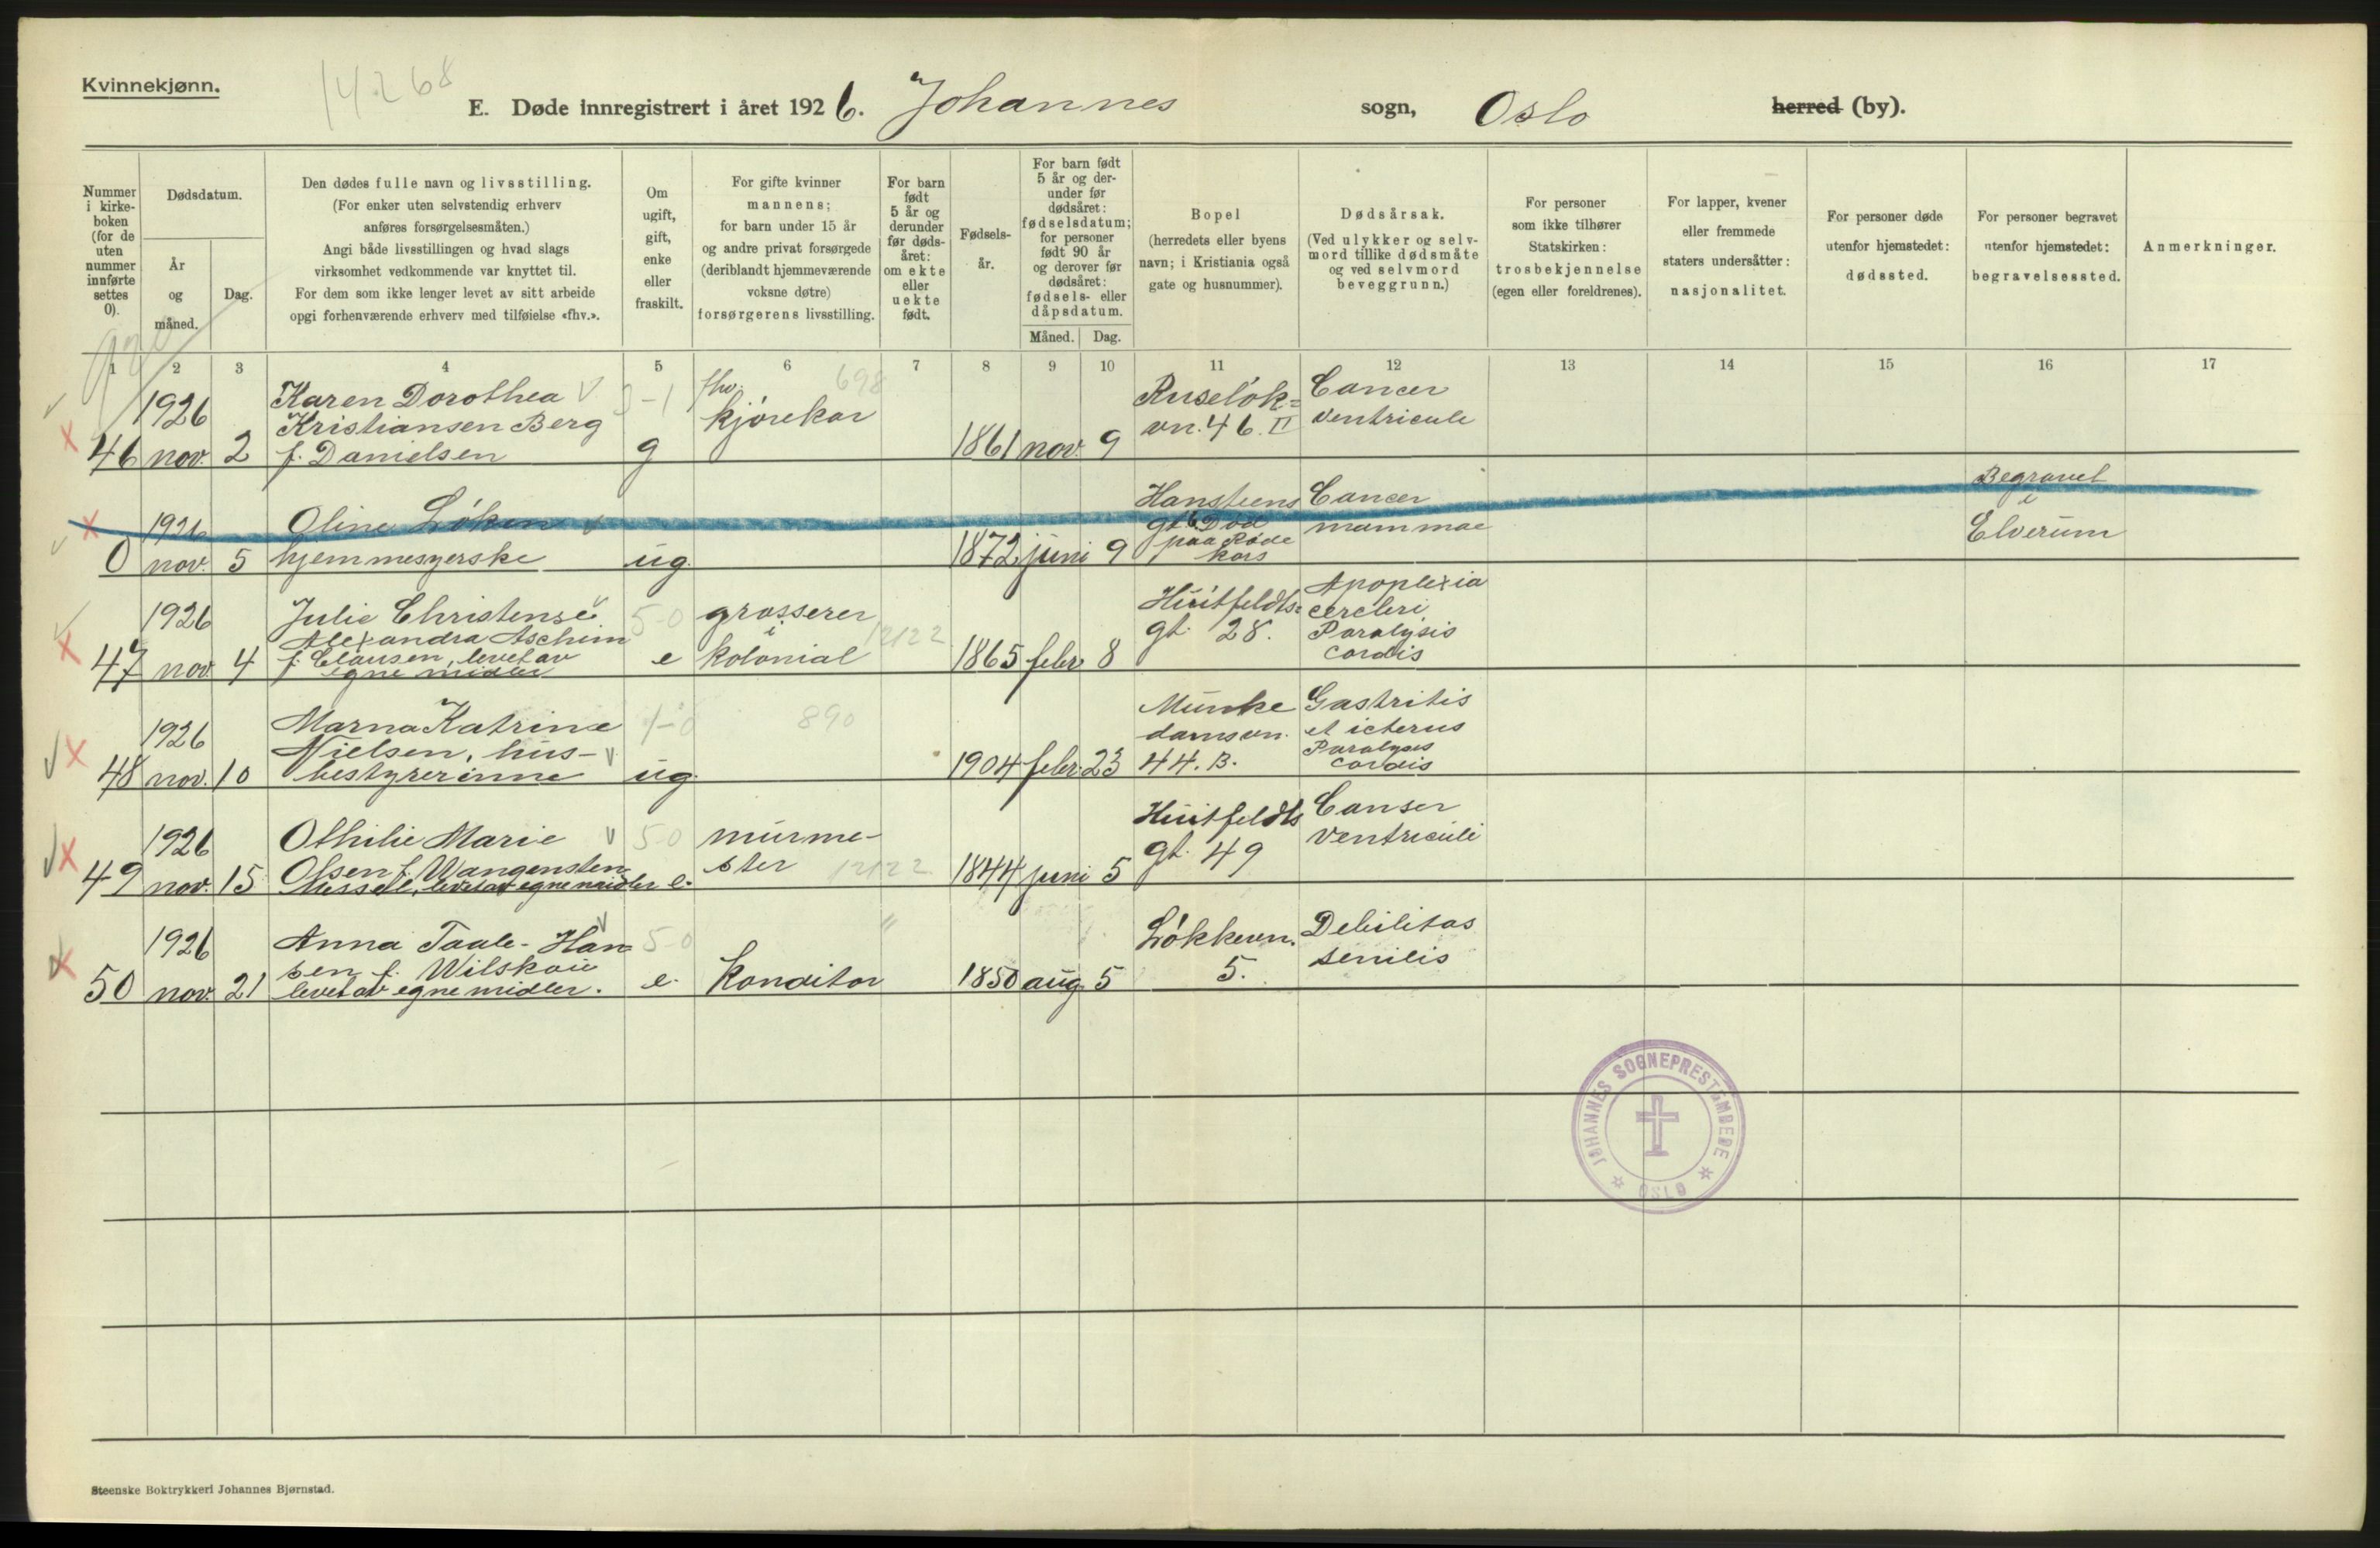 Kvinnekjønn.
14.268
E. Døde innregistrert i året 1926. Johannes sogn, Oslo herred (by).
Nummer i kirkeboken (for de uten nummer innførte settes 0).
Dødsdatum.
År og måned.
Dag.
Den dødes fulle navn og livsstilling.
(For enker uten selvstendig erhverv
anføres forsørgelsesmåten.)
Angi både livsstillingen og hvad slags
virksomhet vedkommende var knyttet til.
For dem som ikke lenger levet av sitt arbeide
opgi forhenværende erhverv med tilføielse «fhv.».
Om
ugift,
gift,
enke
eller
fraskilt.
For gifte kvinner
mannens;
for barn under 15 år
og andre privat forsørgede
(deriblandt hjemmeværende
voksne døtre)
forsørgerens livsstilling.
For barn
født
5 år og
derunder
før døds-
året:
om ekte
eller
uekte
født.
Fødsels-
år.
For barn født
5 år og der-
under før
dødsåret:
fødselsdatum;
for personer
født 90 år
og derover før
dødsåret:
fødsels- eller
dåpsdatum.
Måned. Dag.
Bopel
(herredets eller byens
navn; i Kristiania også
gate og husnummer).
Dødsårsak.
(Ved ulykker og selv-
mord tillike dødsmåte
og ved selvmord
beveggrunn.)
For personer
som ikke tilhører
Statskirken:
trosbekjennelse
(egen eller foreldrenes).
For lapper, kvener
eller fremmede
staters undersåtter:
nasjonalitet.
For personer døde
utenfor hjemstedet:
dødssted.
For personer begravet
utenfor hjemstedet:
begravelsessted.
Anmerkninger.
1 2 3 4 5 6 7 8 9 10 11 12 13 14 15 16 17
46
1926
nov. 2
Karen Dorothea
Kristiansen Berg
f. Danielsen
g
fhv.
kjørekar
698
1861 nov. 9
Ruseløk=
vn. 46. II
Cancer
ventricule
0
1926
nov. 5
Oline Løken
hjemmesyerske
ug.
1872 juni 9
Hansteens
gt 6 Död
paa Røde
Kors
Cancer
mammae
Begravet
i
Elverum
47
1926
nov. 4
Julie Christense
Alexandra Aschim
f. Clausen, levet av
egne midler
5-0
e
grosserer
i
kolonial
12122
1865 febr. 8
Huitfeldts=
gt. 28.
Apoplexia
cerebri
Paralysis
cordis
48
1926
nov. 10
Marna Katrine
Nielsen, hus-
bestyrerinne
1-0
ug.
890
1904 febr. 23
Munke
damsvn.
44. B.
Gastritis
et icterus
Paralyses
cordis
49
1926
nov. 15
Othilie Marie
Olsen f. Wangensten
levet av egne midler
5 0
e.
murme-
ster
12122
1844 juni 5
Huitfeldts
gt. 49
Canser
ventriculi
50
1926
nov. 21
Anna Taale-Han
sen f. Wilskou
levet av egne midler.
5-0
e.
Konditor
"
1850 aug. 5
Løkkevn.
5.
Debilitas
senilis
JOHANNES SOGNEPRESTEMBEDE
OSLO
Steenske Boktrykkeri Johannes Bjørnstad.